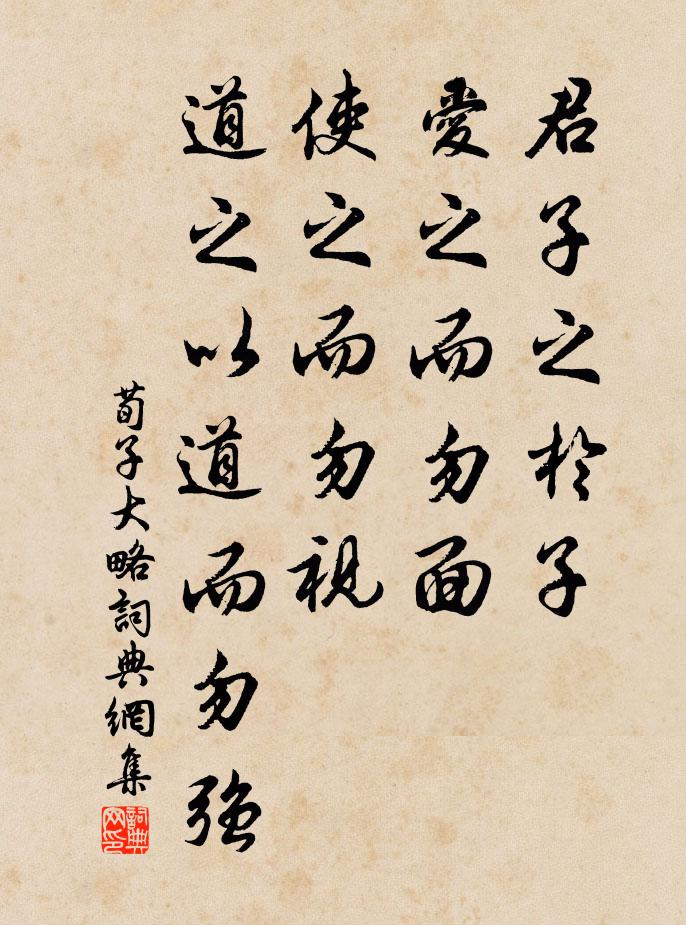 君子之於子
愛之而勿面
使之而勿視
道之以道而勿強
荀子大略詞典網集
詞典网印